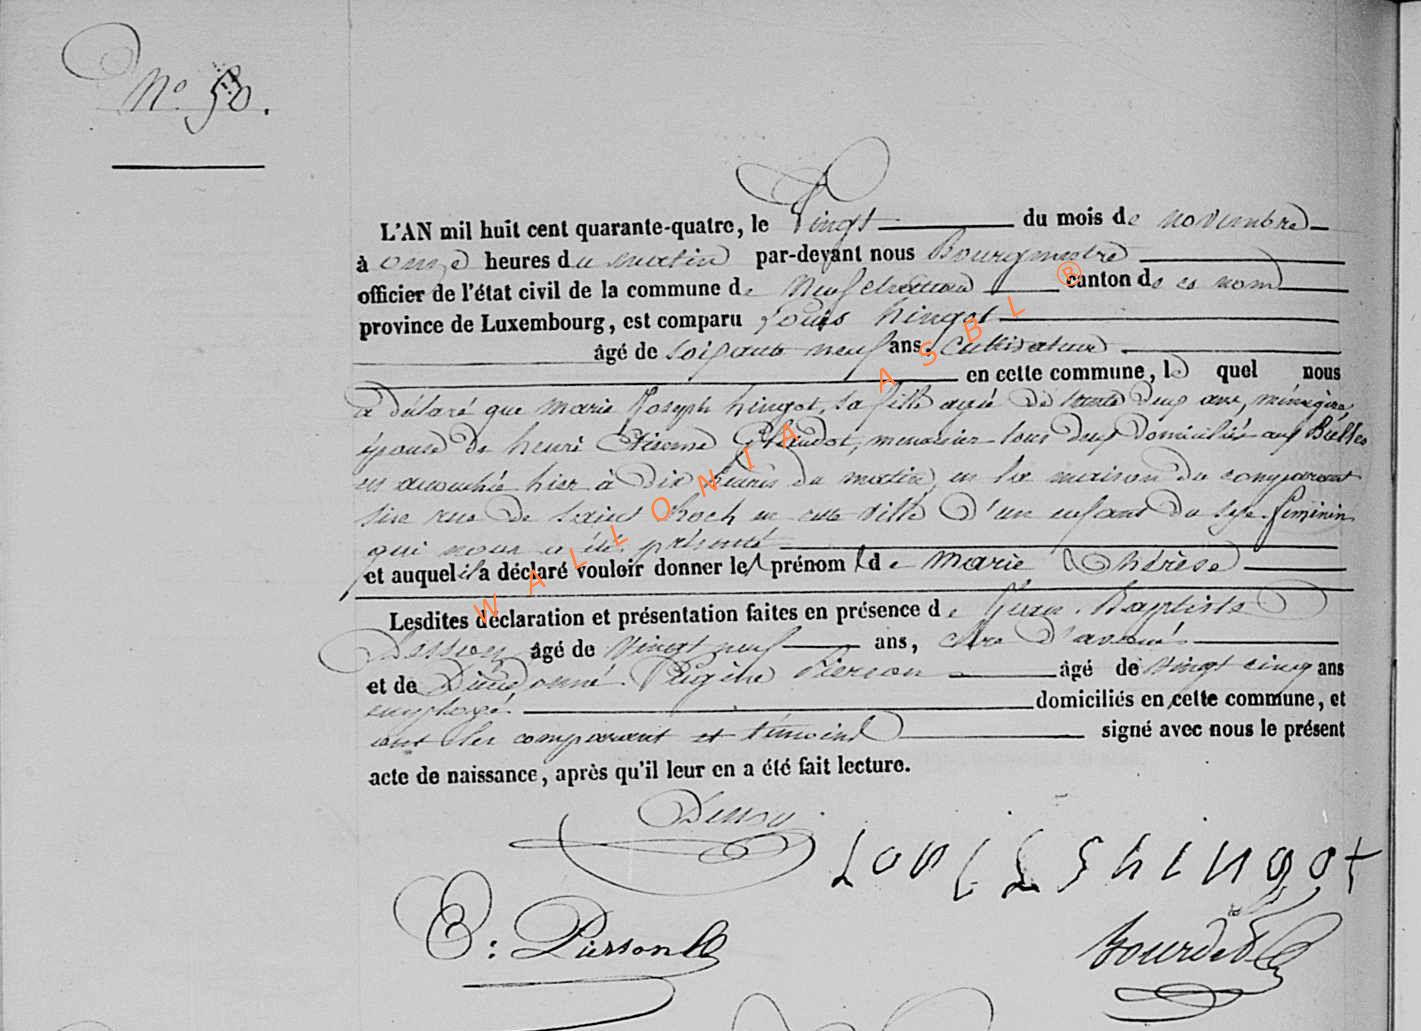 No 50.
L'AN mil huit cent quarante-quatre, le Vingt du mois de novembre
à onze heures du matin par-devant nous Bourgmestre
officier de l'état civil de la commune de Neufchateau canton de ce nom
province de Luxembourg, est comparu Louis hingot
âgé de soixante neuf ans, Cultivateur
en cette commune, le quel nous
a déclaré que marie Joseph hingot, sa fille agée de trente deux ans, ménagère,
épouse de henri Etienne menuisier tous deux domiciliés aux Bulles
est accouchée hier à Dix heures du matin, en la maison du comparant
sise rue de Saint Roch en cette ville D'un enfant du sexe féminin
qui nous a été présenté
et auquel il a déclaré vouloir donner le prénom de marie Thérèse
Lesdites déclaration et présentation faites en présence de Jean Baptiste
âgé de vingt neuf ans, clerc D'avoué
et de Dieudonné Eugène Pierson âgé de vingt cinq ans
employé domiciliés en cette commune, et
ont les comparant et témoins signé avec nous le présent
acte de naissance, après qu'il leur en a été fait lecture.
Louis hingot
E: Pierson
Bourdet
WALLONIA ASBL ®